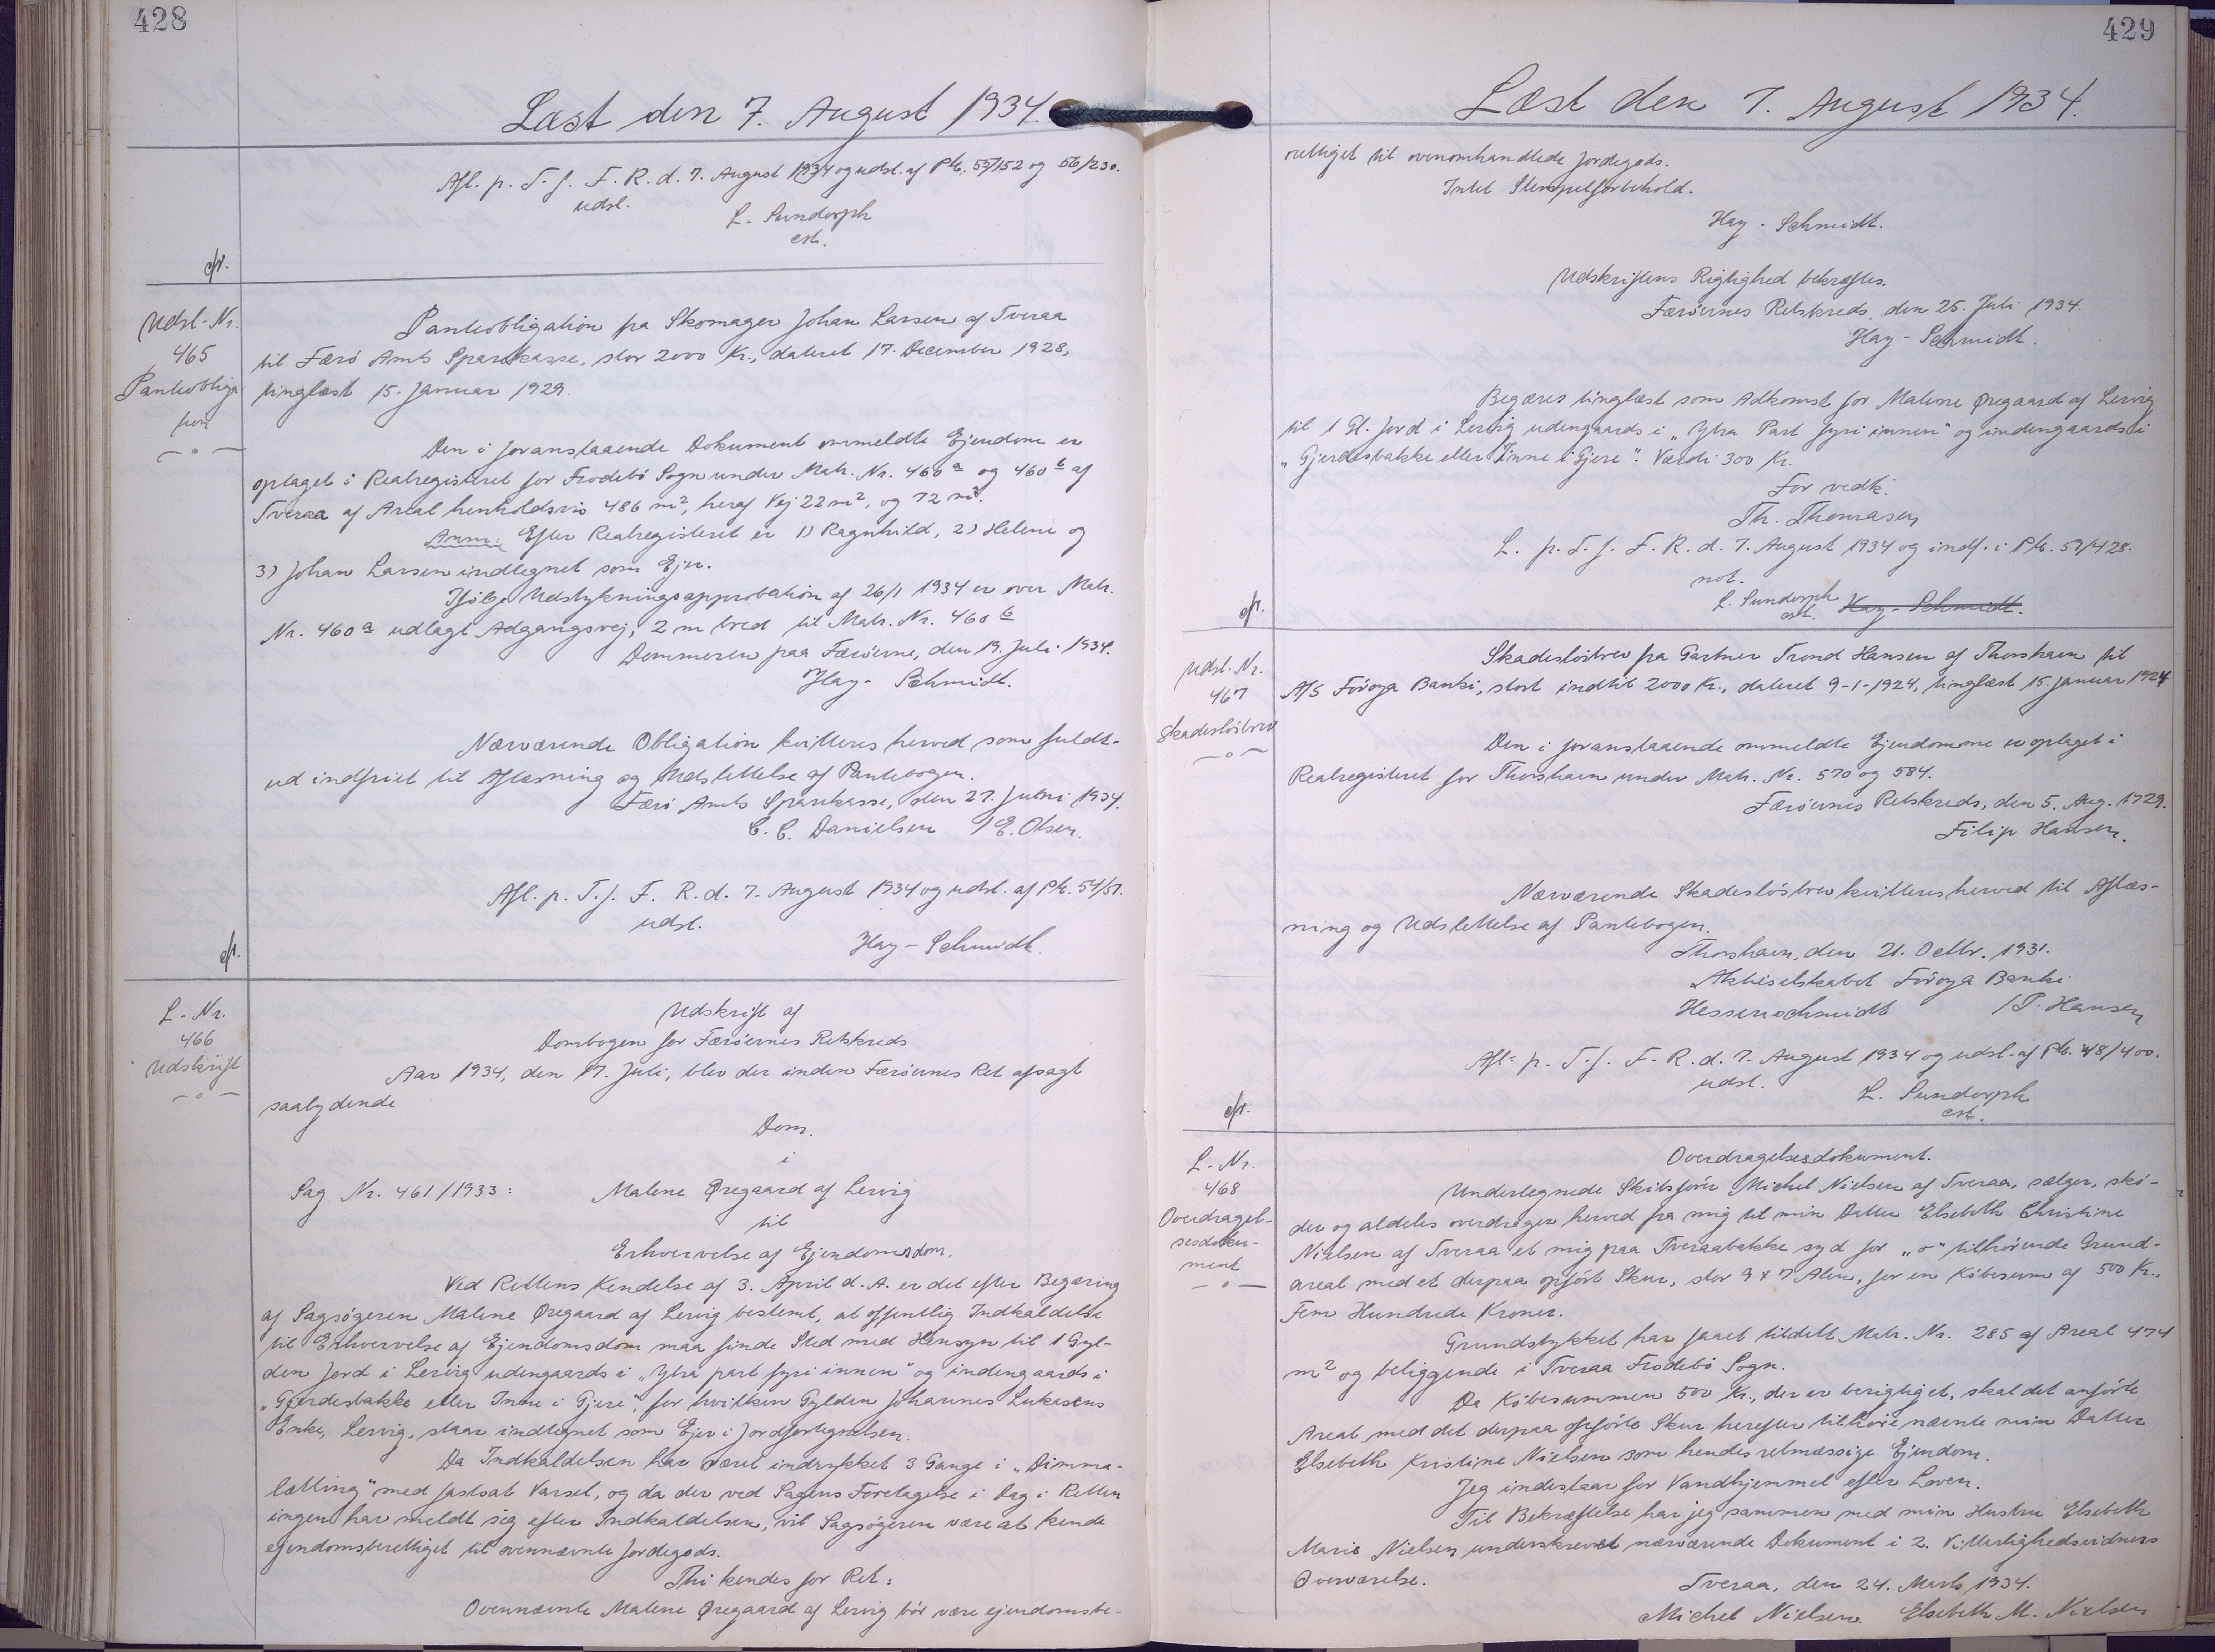 428
Læst den 7. August 1934.
Afl. p. T. f. F. R. d. 7. August 1934 og udsl. af Ptb. 55/152 og 56/230.
udsl.
L. Sundorph
cst.
cfr.
Udsl-Nr.
465
Panteobliga-
tion
Panteobligation fra Skomager Johan Larsen af Tveraa
til Færø Amts Sparekasse, stor 2000 Kr., dateret 17. December 1928,
tinglæst 15. Januar 1929.
Den i foranstaaende Dokument ommeldte Ejendom er
optaget i Realregistret for Frodebø Sogn under Matr. Nr. 460a og 460b af
Tveraa af Areal henholdsvis 486 m², heraf Vej 22 m², og 72 m².
Anm: Efter Realregisteret er 1) Ragnhild, 2) Helene og
3) Johan Larsen indtegnet som Ejer.
Ifølge Udstykningsapprobation af 26/1 1934 er over Matr.
Nr. 460a udlagt Adgangsvej, 2 m bred til Matr. Nr. 460b
Dommeren paa Færøerne, den 19. Juli 1934.
Hay-Schmidt.
Nærværende Obligation kvitteres herved som fuldt-
ud indfriet til Aflæsning og Udslettelse af Pantebogen.
Færø Amts Sparekasse, den 27. Juni 1934.
C. C. Danielsen /E. Olsen.
Afl. p. T. f. F. R. d. 7. August 1934 og udsl. af Ptb. 54/51.
udsl.
Hay-Schmidt.
cfr.
L. Nr.
466
Udskrift
Udskrift af
Dombogen for Færøernes Retskreds
Aar 1934, den 17. Juli, blev der inden Færøernes Ret afsagt
saalydende
Dom.
i
Sag Nr. 461/1933: Malene Øregaard af Lervig
til
Erhvervelse af Ejendomsdom.
Ved Rettens Kendelse af 3. April d. A. er det efter Begæring
af Sagsøgeren Malene Øregaard af Lervig bestemt, at offentlig Indkaldelse
til Erhvervelse af Ejendomsdom maa finde Sted med Hensyn til 1 Gyl-
den Jord i Lervig udengaards i "Ytra part fyri innen" og indengaards i
"Gjerdesbakke eller Inne i Gjere", for hvilken Gylden Johannes Lukasens
Enke, Lervig, staar indtegnet som Ejer i Jordfortegnelsen.
Da Indkaldelsen har været indrykket 3 Gange i "Dimma-
lætting" med fastsat Varsel, og da der ved Sagens Foretagelse i Dag i Retten
ingen har meldt sig efter Indkaldelsen, vil Sagsøgeren være at kende
ejendomsberettiget til ovennævnte Jordegods.
Thi kendes for Ret:
Ovennævnte Malene Øregaard af Lervig bør være ejendomsbe-
429
Læst den 7. August 1934.
rettiget til ovenomhandlede Jordegods.
Intet Stempelforbehold.
Hay-Schmidt.
Udskriftens Rigtighed bekræftes.
Færøernes Retskreds, den 25. Juli 1934.
Hay-Schmidt.
Begæres tinglæst som Adkomst for Malene Øregaard af Lervig
til 1 Gl. Jord i Lervig udengaards i "Ytra Part fyri innen" og indengaards i
"Gjerdesbakke eller Inne i Gjere". Værdi 300 Kr.
For vedk.
Th. Thomasen
L. p. T. f. F. R. d. 7. August 1934 og indf. i Ptb. 59/428.
not.
L. Sundorph Hay-Schmidt.
cst.
cfr.
Udsl. Nr.
467
Skadesløsbrev
Skadesløsbrev fra Gartner Trond Hansen af Thorshavn til
A/S Føroya Banki, stort indtil 2000 Kr., dateret 9-1-1924, tinglæst 15. Januar 1924
Den i foranstaaende ommeldte Ejendomme er optaget i
Realregisteret for Thorshavn under Matr. Nr. 570 og 584.
Færøernes Retskreds, den 5. Aug. 1929.
Filip Hansen.
Nærværende Skadesløsbrev kvitteres herved til Aflæs-
ning og Udslettelse af Pantebogen.
Thorshavn, den 21. Oktbr. 1931.
Aktieselskabet Føroya Banki
Hessenschmidt /P. Hansen
Afl. p. T. f. F. R. d. 7. August 1934 og udsl. af Ptb. 48/400.
udsl.
L. Sundorph
cst.
cfr.
L. Nr.
468
Overdragel-
sesdoku-
ment
Overdragelsesdokument.
Undertegnede Skibsfører Michel Nielsen af Tveraa, sælger, skø-
der og aldeles overdrager herved fra mig til min Datter Elsebeth Christine
Nielsen af Tveraa et mig paa Tveraabakke syd for "o" tilhørende Grund-
areal med et derpaa opført Skur, stor 9 x 7 Alen, for en Købesum af 500 Kr.,
Fem Hundrede Kroner.
Grundstykket har faaet tildelt Matr. Nr. 285 af Areal 474
m² og beliggende i Tveraa Frodebø Sogn.
Da Købesummen 500 Kr., der er berigtiget, skal det anførte
Areal med det derpaa opførte Skur herefter tilhøre nævnte min Datter
Elsebeth Kristine Nielsen som hendes retmæssige Ejendom.
Jeg indestaar for Vandhjemmel efter Loven.
Til Bekræftelse har jeg sammen med min Hustru Elsebeth
Marie Nielsen underskrevet nærværende Dokument i 2. Vitterlighedsvidners
Overværelse.
Tveraa, den 24. Marts 1934.
Michel Nielsen. Elsebeth M. Nielsen